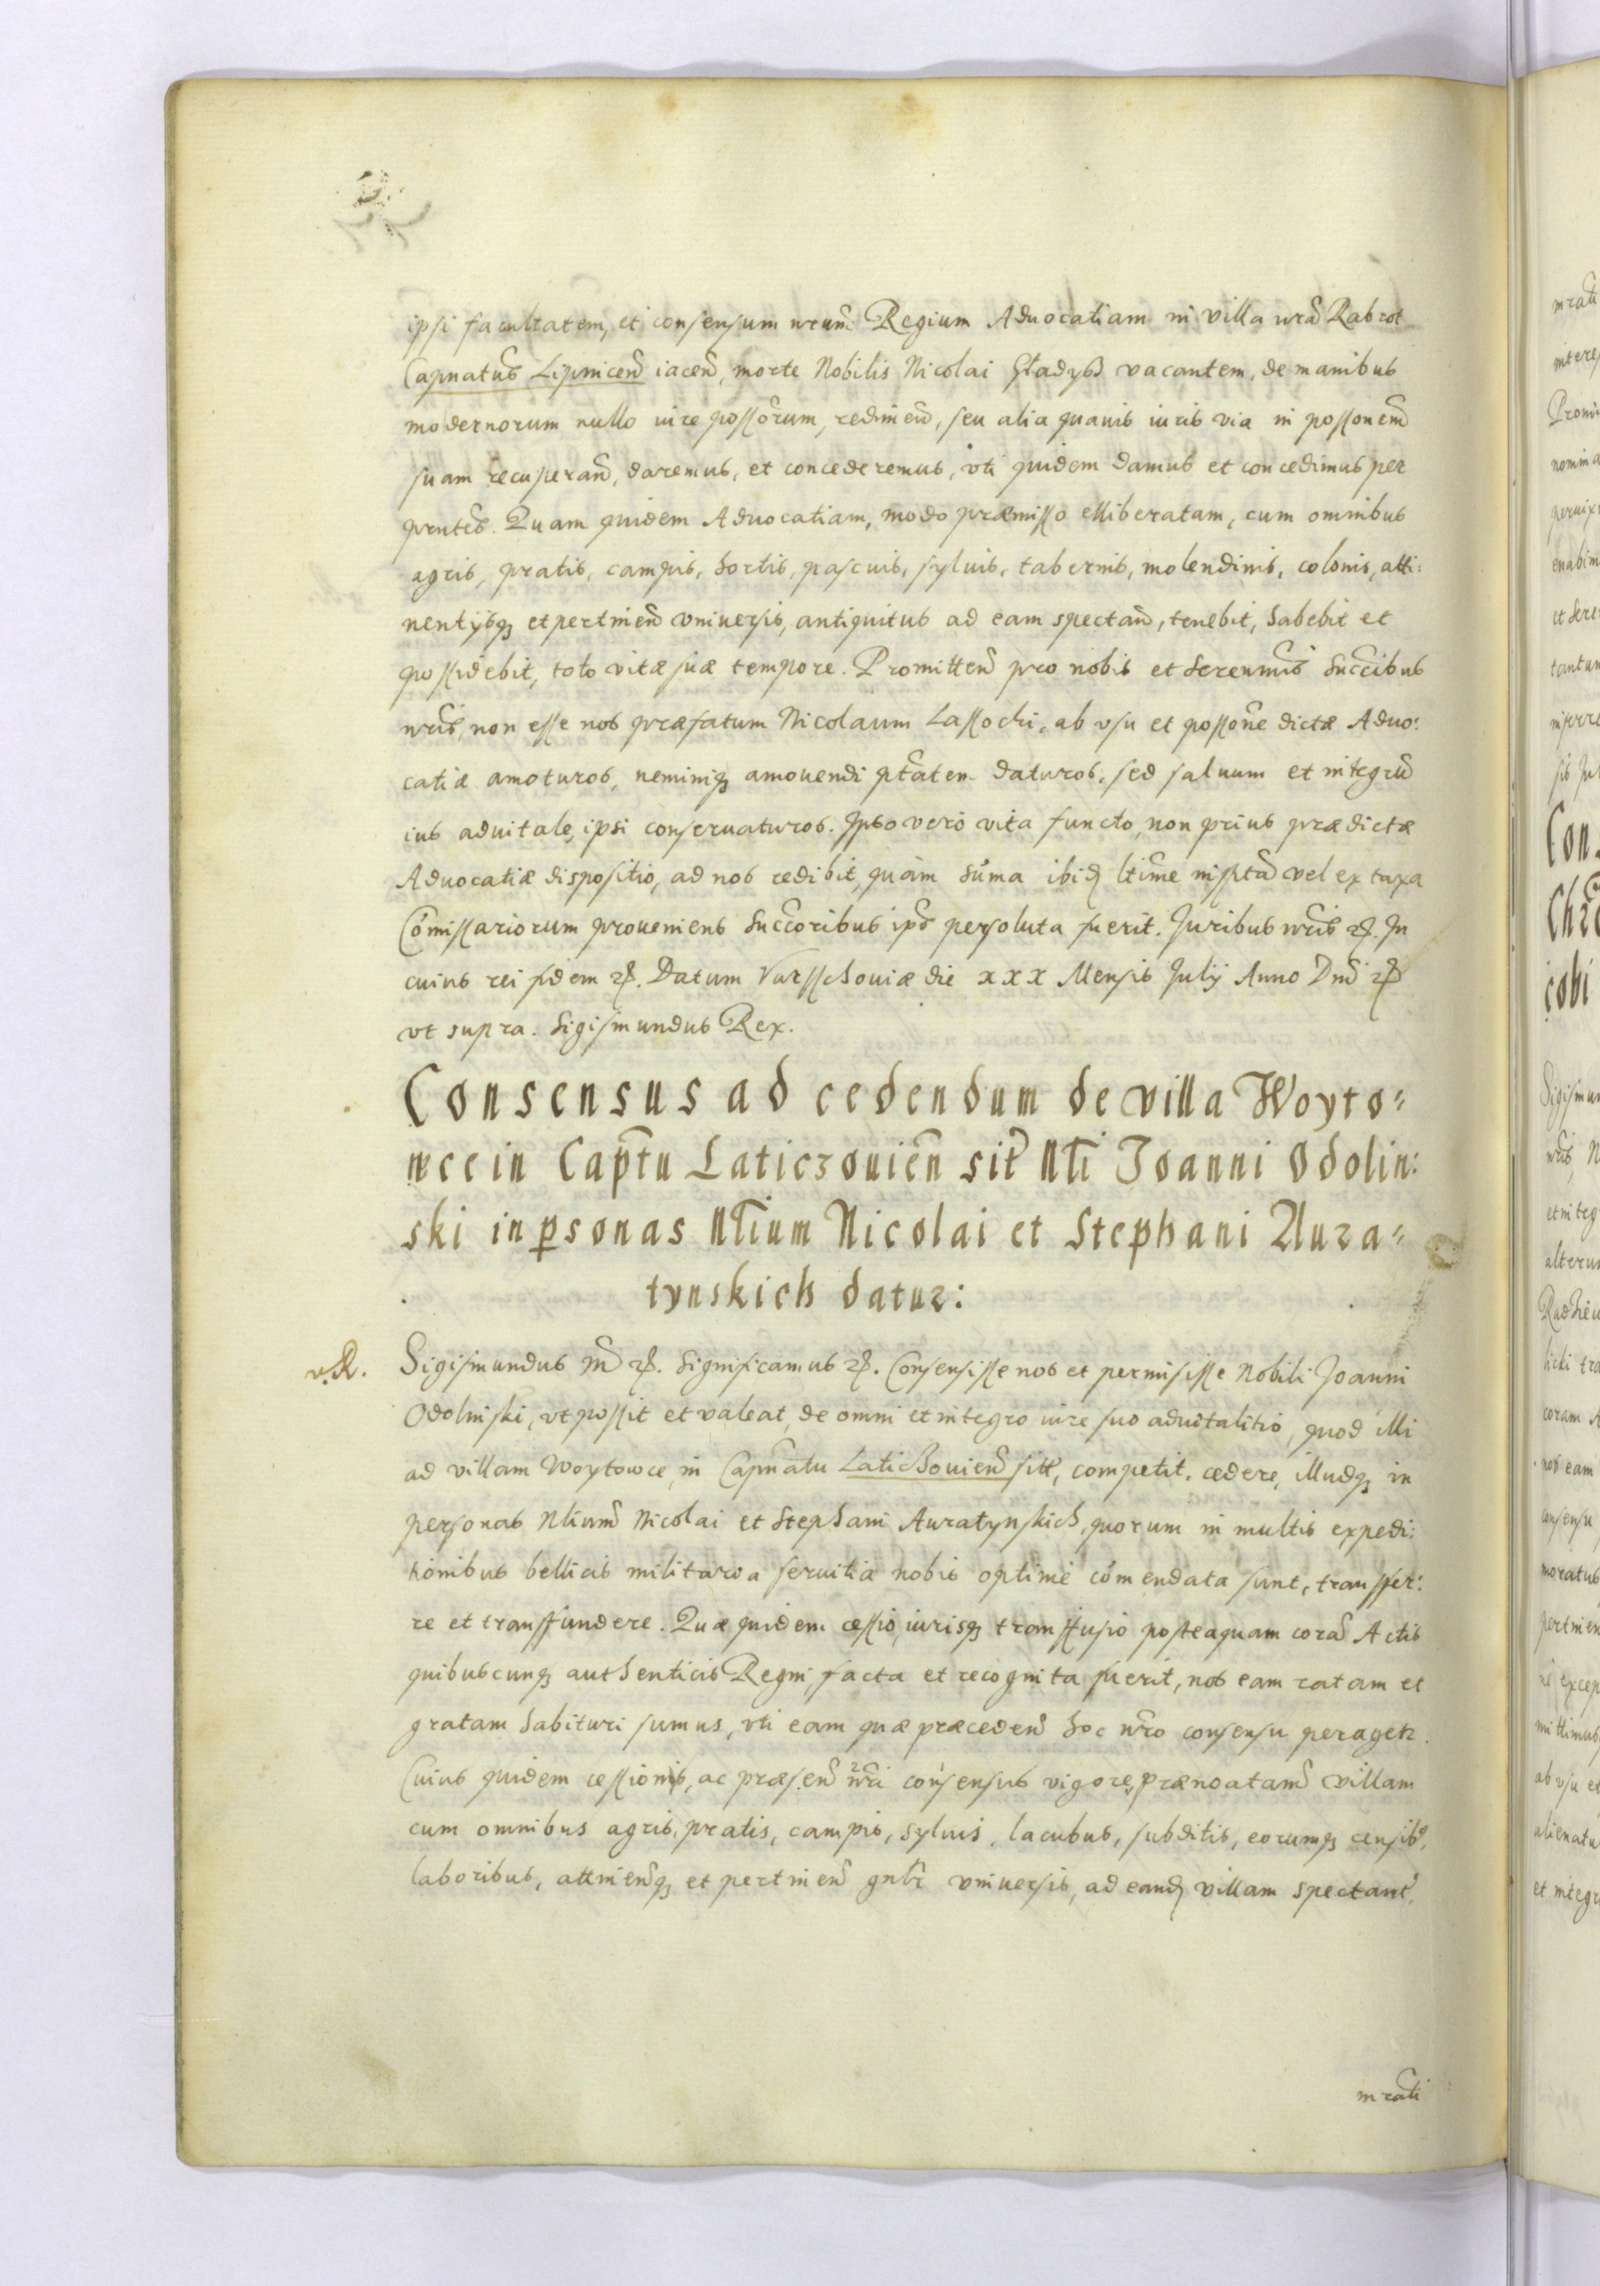 ipsi facultatem, et consensum nrum Regium Aduocatiam in villa nra Rabrot
Capnatus Lipnicen iacen, morte Nobilis Nicolai Gładysz vacantem, de manibus
modernorum nullo iure possorum, redimen, seu alia quauis iuris via in possonem
suam recuperan, daremus, et concederemus, vti quidem damus et concedimus per
pnte̅s. Quam quidem Aduocatiam, modo præmisso elliberatam, cum omnibus
agris, pratis, campis, hortis, pascuis, syluis, tabernis, molendinis, colonis, atti:
nentijsq3 et pertinen vniuersis, antiquitus ad eam spectan, tenebit, habebit et
possidebit, toto vitæ suæ tempore. Promitten pro nobis et Serenmis Succibus
nris, non esse nos præfatum Nicolaum Lassochi, ab vsu et possone dictæ Aduo:
catiæ amoturos, neminiq3 amouendi ptatem daturos, sed saluum et integru
ius aduitale ipsi conseruaturos. Ipso vero vita functo, non prius prædictæ
Aduocatiæ dispositio, ad nos redibit, quàm suma ibid ltime inspta vel ex taxa
Comissariorum proueniens Succoribus ips persoluta fuerit. Juribus nris etc. In
cuius rei fidem etc. Datum Varsschouiæ die xxx Mensis Julij Anno Dni etc
vt supra. Sigismundus Rex.
Consensus ad cedendum de villa Woyto=
wce in Captu Laticzouien sit Nli Joanni Odolin:
ski in psonas Nlium Nicolai et Stephani Aura=
tynskich datur:
Sigismundus 3 etc. Significamus etc. Consensisse nos et permisisse Nobili Joanni
Odolinski, vt possit et valeat, de omni et integro iure suo aduitalitio, quod illi
ad villam Woytowce, in Capnatu Laticzouien sitt, competit, cedere, illudq3 in
personas Nlium Nicolai et Stephani Auratynskich, quorum in multis expedi:
tionibus bellicis militaria seruitia nobis optime comendata sunt, transfer:
re et transfundere. Quæ quidem cessio, iurisq3 transfusio posteaquam cora Actis
quibuscunq3 authenticis Regni facta et recognita fuerit, nos eam ratam et
gratam habituri sumus, vti eam quæ præceden hoc nro consensu peragetr.
Cuius quidem cessionis, ac præsen nri consensus vigore, prænoatam villam
cum omnibus agris, pratis, campis, syluis, lacubus, subditis, eorumq3 censibs,
laboribus, attinenq3 et pertinen gnlr vniuersis, ad eand villam spectant,
mrati